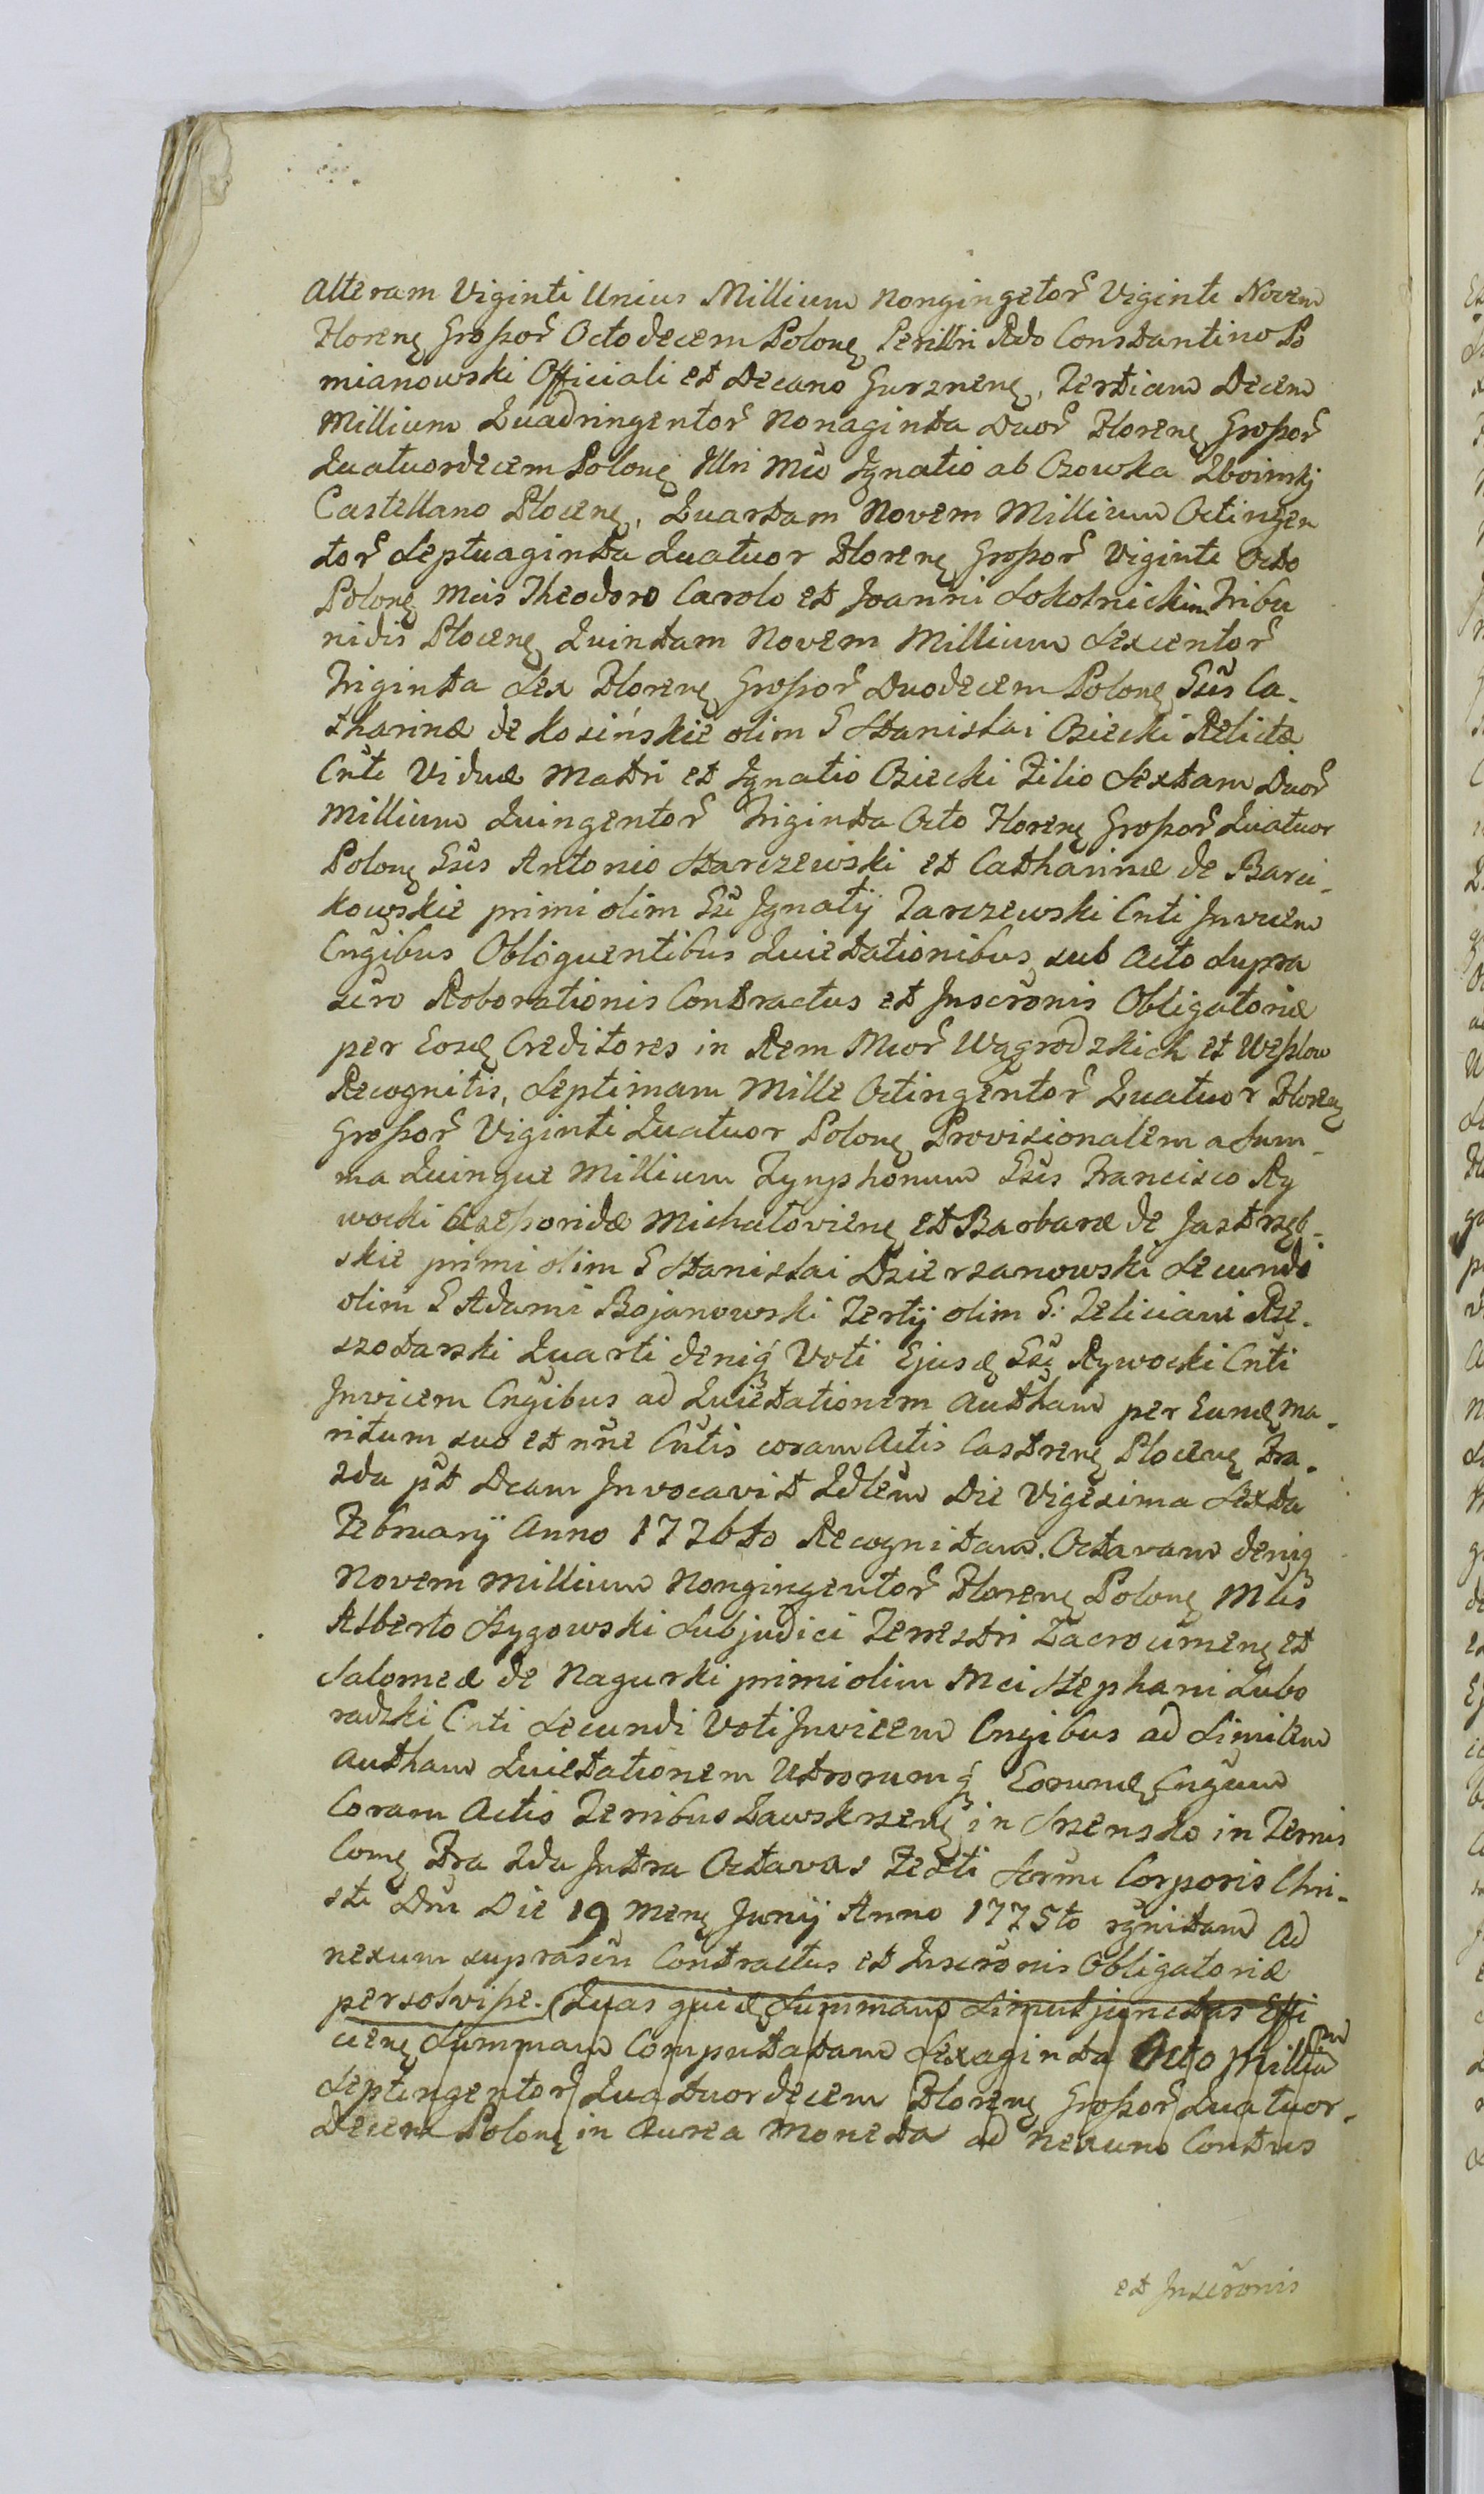 Alteram Viginti Unius Millium Nongingetor̃ Viginti Novem
Florenȩ Großor̃ Octodecem Polonȩ Perillri Rdo Constantino Po
mianowski Officiali et Decano Gurznenȩ, Tertiam Decem
Millium Quadringentor̃ Nonaginta Duor̃ Florenȩ Großor̃
Quatuordecem Polonȩ Illri Mco Ignatio ab Osowka Zboinskj
Castellano Plocenȩ, Quartam Novem Millium Octingen
tor̃ Septuaginta Quatuor Florenȩ Großor̃ Viginti Octo
Polonȩ Mcis Theodoro Carolo et Joanni Sokolnickim Tribu
nidis Plocenȩ Quintam Novem Millium Sexcentor̃
Triginta Sex Florenȩ Großor̃ Duodecem Polonȩ Gs̃is Ca-
tharinæ de Kosińskie olim G Stanislai Osiecki Relictæ
Cñti Viduæ Matri et Ignatio Osiecki Filio Sextam Duor̃
Millium Quingentor̃ Triginta Octo Florenȩ Großor̃ Quatuor
Polonȩ Gs̃is Antonio Starczewski et Catharinæ de Barci-
kowskie primi olim Gs̃i Ignatij Tarczewski Cnti Invicem
Cngibus Obloquentibus Quietationibus sub Acto Supra
scro Roborationis Contractus et Inscr̃onis Obligatoriæ
per Eosȩ Creditores in Rem Mcor̃ Wągrodzkich et Weßlow
Recognitis, Septimam Mille Octingentor̃ Quatuor Florenȩ
Großor̃ Viginti Quatuor Polonȩ Provisionalem a Sum-
ma Quinque Millium Tynphonum Gs̃is Francisco Ry
wocki Cæsporidæ Michaloviene̜ et Barbaræ de Jastrzęb-
skie primi olim G Stanislai Dzierzanowski Secundi
olim G Adami Bojanowski Tertij olim G: Feliciani Rze-
szotarski Quarti deniq́ Voti Ejusȩ Gs̃ȩ Rywocki Cnti
Invicem Cngibus ad Quietationem Autham per Eumȩ ma-
ritum suo et nñe Cñtis coram Actis Castrenȩ Plocenȩ Fra-
2da pt̃ Dcam Invocavit 2dlem Die Vigesima Sexta
Februarij Anno 1776to Recognitam. Octavam deniq
Novem Millium Nongingentor̃ Florenȩ Polonȩ Mc̃is
Alberto Szygowski Subjudici Terrestri Zacrocimenȩ et
Salomeæ de Nagurki primi olim Mci Stephani Lubo
radzki Cnti Secundi Voti Invicem Cngibus ad Similem
Autham Quietationem Utrorumq́ Eorumȩ Cngum
Coram Actis Terribus Zawskrzenȩ in Srzensko in Termis
Comȩ Fra 2da Intra Octavas Festi Scrmi Corporis Chri-
sti Dni Die 19 Menȩ Junij Anno 1775to rg̃nitam Ad
nexum suprascri Contractus et Inscr̃onis Obligatoriæ
persolviße. (Quas quiȩ Summas Simul junctas Effi
cienȩ Summam Computatam Sexaginta Octo Millium
Septingentor̃ Quatuordecem Florenȩ Großor̃ Quatuor-
decem Polonȩ in Aurea Moneta ad nexum Contrus
et Inscr̃onis